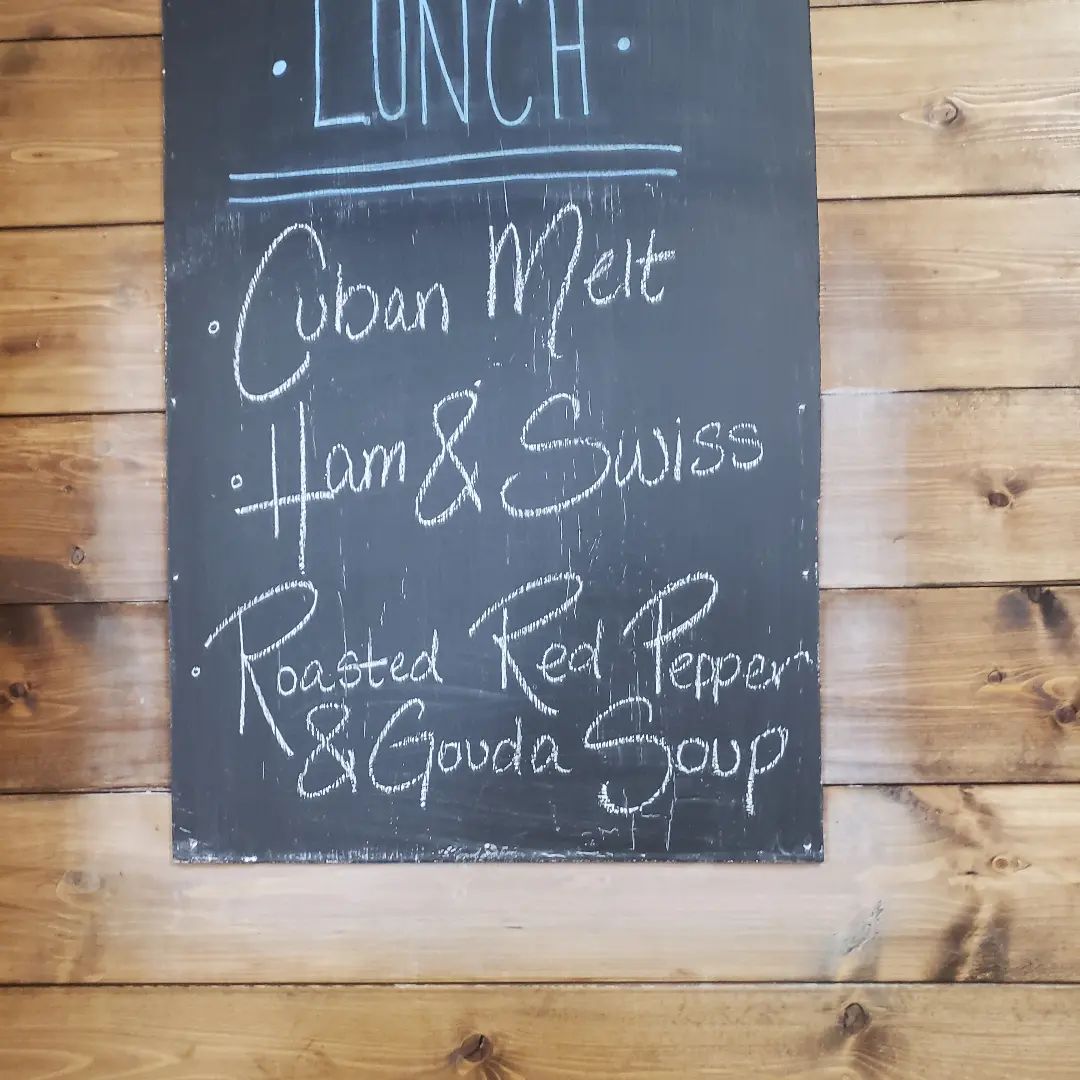 • LUNCH •
◦ Cuban Melt
◦ Ham & Swiss
◦ Roasted Red Pepper
& Gouda Soup